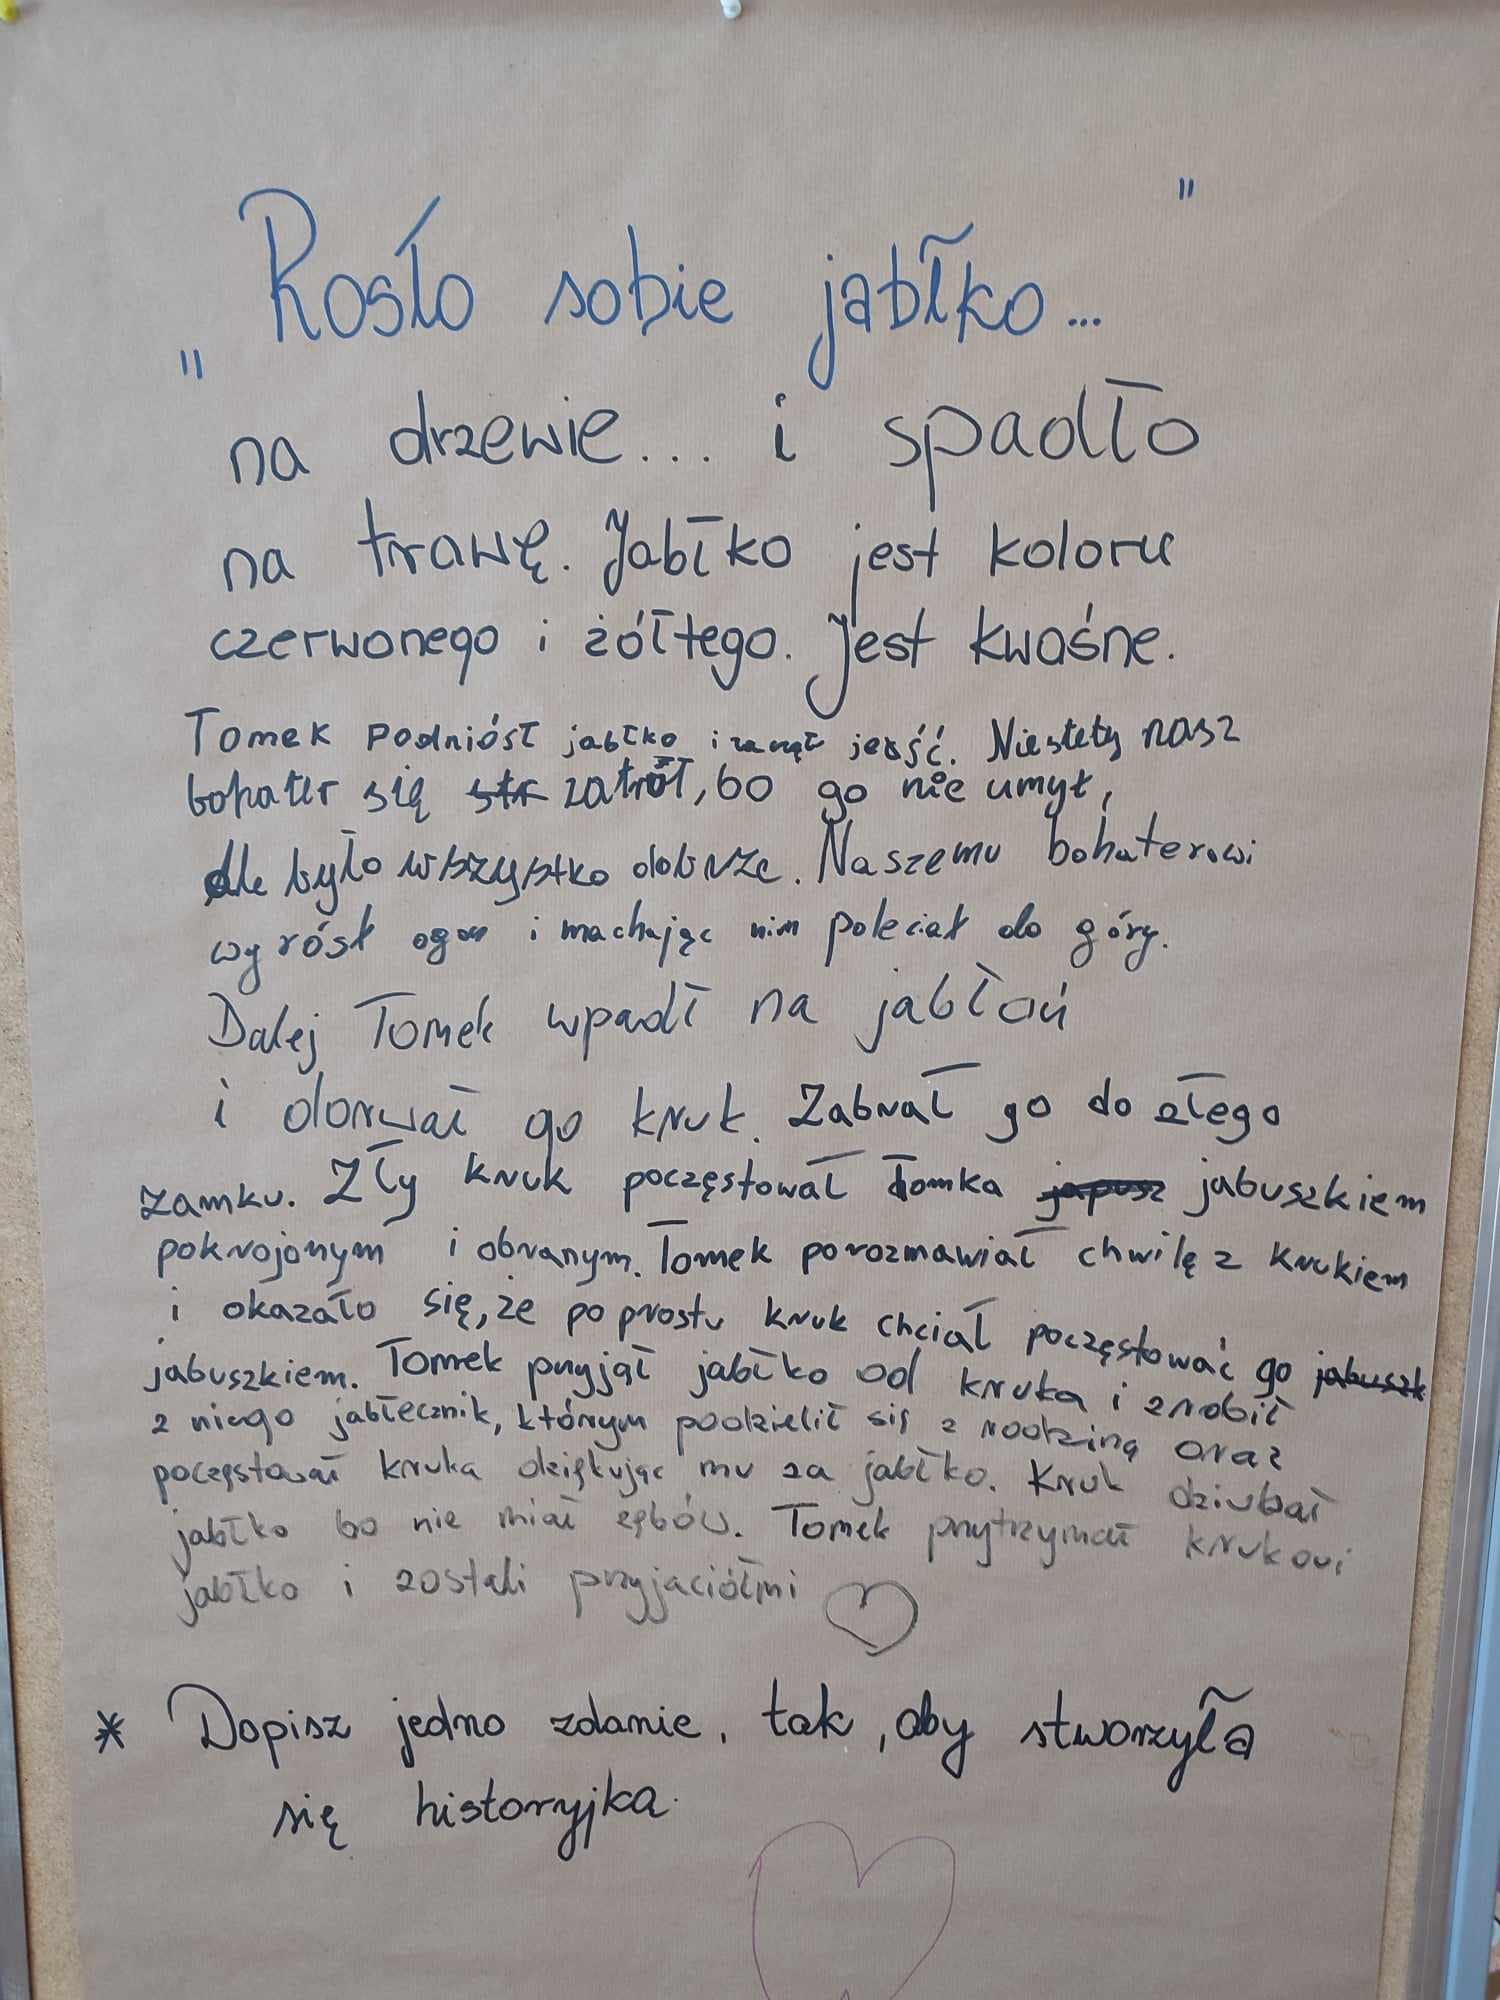 „Rosło sobie jabłko..."
na drzewie... i spadło
na trawę. Jabłko jest koloru
czerwonego i żółtego. Jest kwaśne.
Tomek podniósł jabłko i zaczął jeść. Niestety nasz
bohater się str zatrół, bo go nie umył,
Ale było wszystko dobrze. Naszemu bohaterowi
wyrósł ogon i machając nim poleciał do góry.
Dalej Tomek wpadł na jabłoń
i dorwał go kruk. Zabrał go do złego
zamku. Zły kruk poczęstował Tomka japusz jabuszkiem
pokrojonym i obranym. Tomek porozmawiał chwilę z krukiem
i okazało się, że po prostu kruk chciał poczęstować go jabuszk
jabuszkiem. Tomek przyjął jabłko od kruka i zrobił
z niego jabłecznik, którym podzielił się z rodziną oraz
poczęstował kruka dziękując mu za jabłko. Kruk dziubał
jabłko bo nie miał zębów. Tomek przytrzymał krukowi
jabłko i zostali przyjaciółmi
* Dopisz jedno zdanie, tak, aby stworzyła
się historyjka.